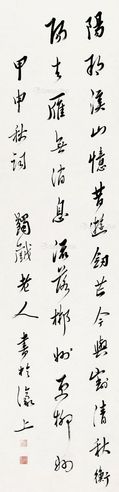 陽朔溪山憶昔遊劍芒今與割清秋衡
陽去雁無消息流落郴州更柳州
甲申秋詞 蠲戲老人書於濠上